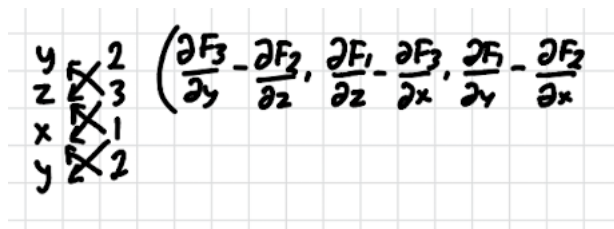 y 2
z 3
x 1
y 2
(∂F₃/∂y - ∂F₂/∂z, ∂F₁/∂z - ∂F₃/∂x, ∂F₁/∂y - ∂F₂/∂x